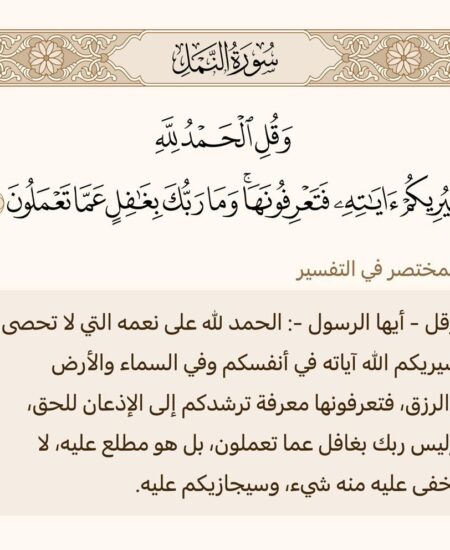 سُورَةُ النَّمْلِ
وَقُلِ ٱلْحَمْدُ لِلَّهِ
يُرِيكُمْ ءَايَٰتِهِۦ فَتَعْرِفُونَهَا ۚ وَمَا رَبُّكَ بِغَٰفِلٍ عَمَّا تَعْمَلُونَ
لمختصر في التفسير
وقل - أيها الرسول -: الحمد لله على نعمه التي لا تحصى
سيريكم الله آياته في أنفسكم وفي السماء والأرض
الرزق، فتعرفونها معرفة ترشدكم إلى الإذعان للحق،
وليس ربك بغافل عما تعملون، بل هو مطلع عليه، لا
خفى عليه منه شيء، وسيجازيكم عليه.